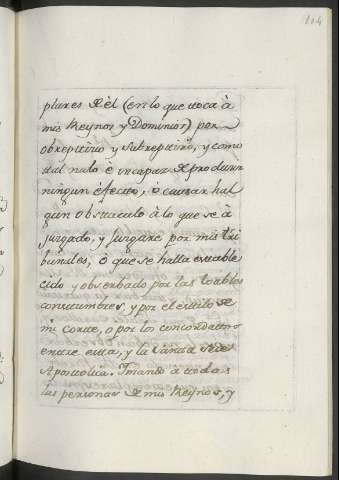 114
plares de èl (en lo que toca à
mis Reynos y Dominios) por
obrepticio y subrepticio, y como
tal nulo è incapaz de produzir
ningun efecto, ò causar hal
gun obstaculo à lo que se à
juzgado, y juzgare por mis tri
bunales, ò que se halla estable
cido y observado por las loables
constumbres, y por el estilo de
mi corte, o por los concordatos
entre esta, y la Santa Sede
Apostolica. Imando à todas
las personas de mis Reynos, y